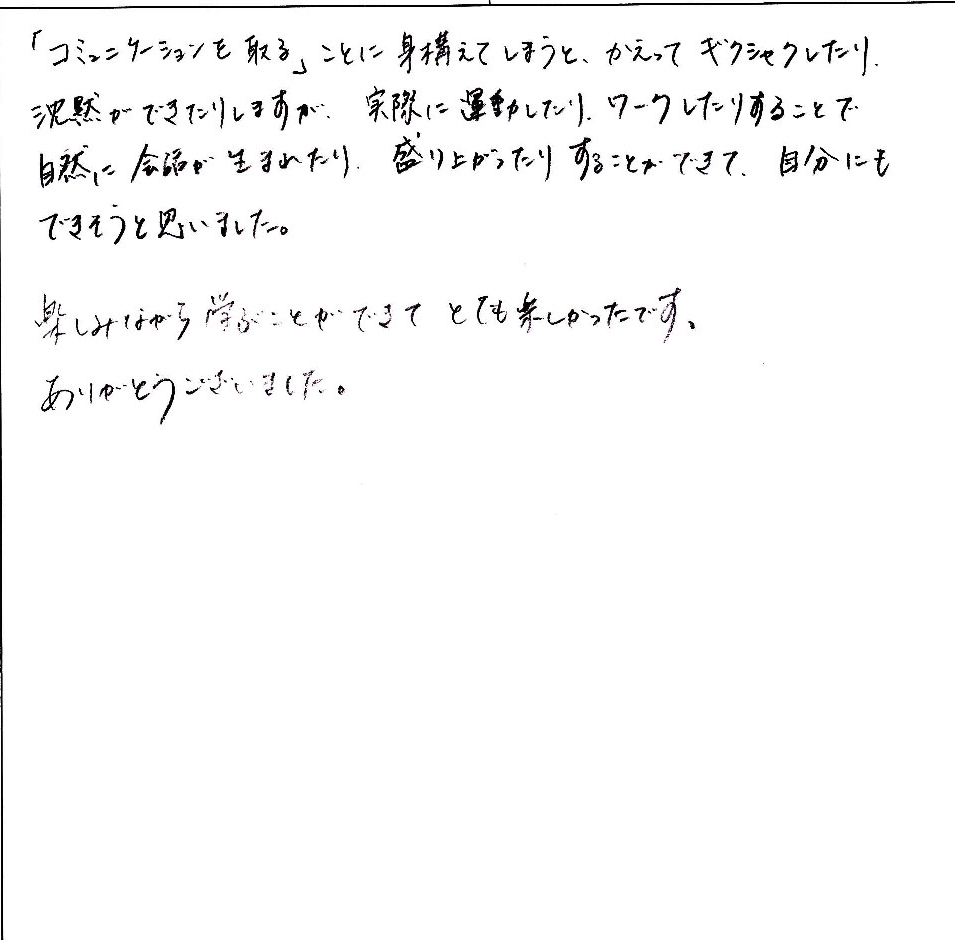 「コミュニケーションを取る」ことに身構えてしまうと、かえってギクシャクしたり、
沈黙ができたりしますが、実際に運動したり、ワークしたりすることで
自然に会話が生まれたり、盛り上がったりすることができて、自分にも
できそうと思いました。
楽しみながら学ぶことができてとても楽しかったです。
ありがとうございました。